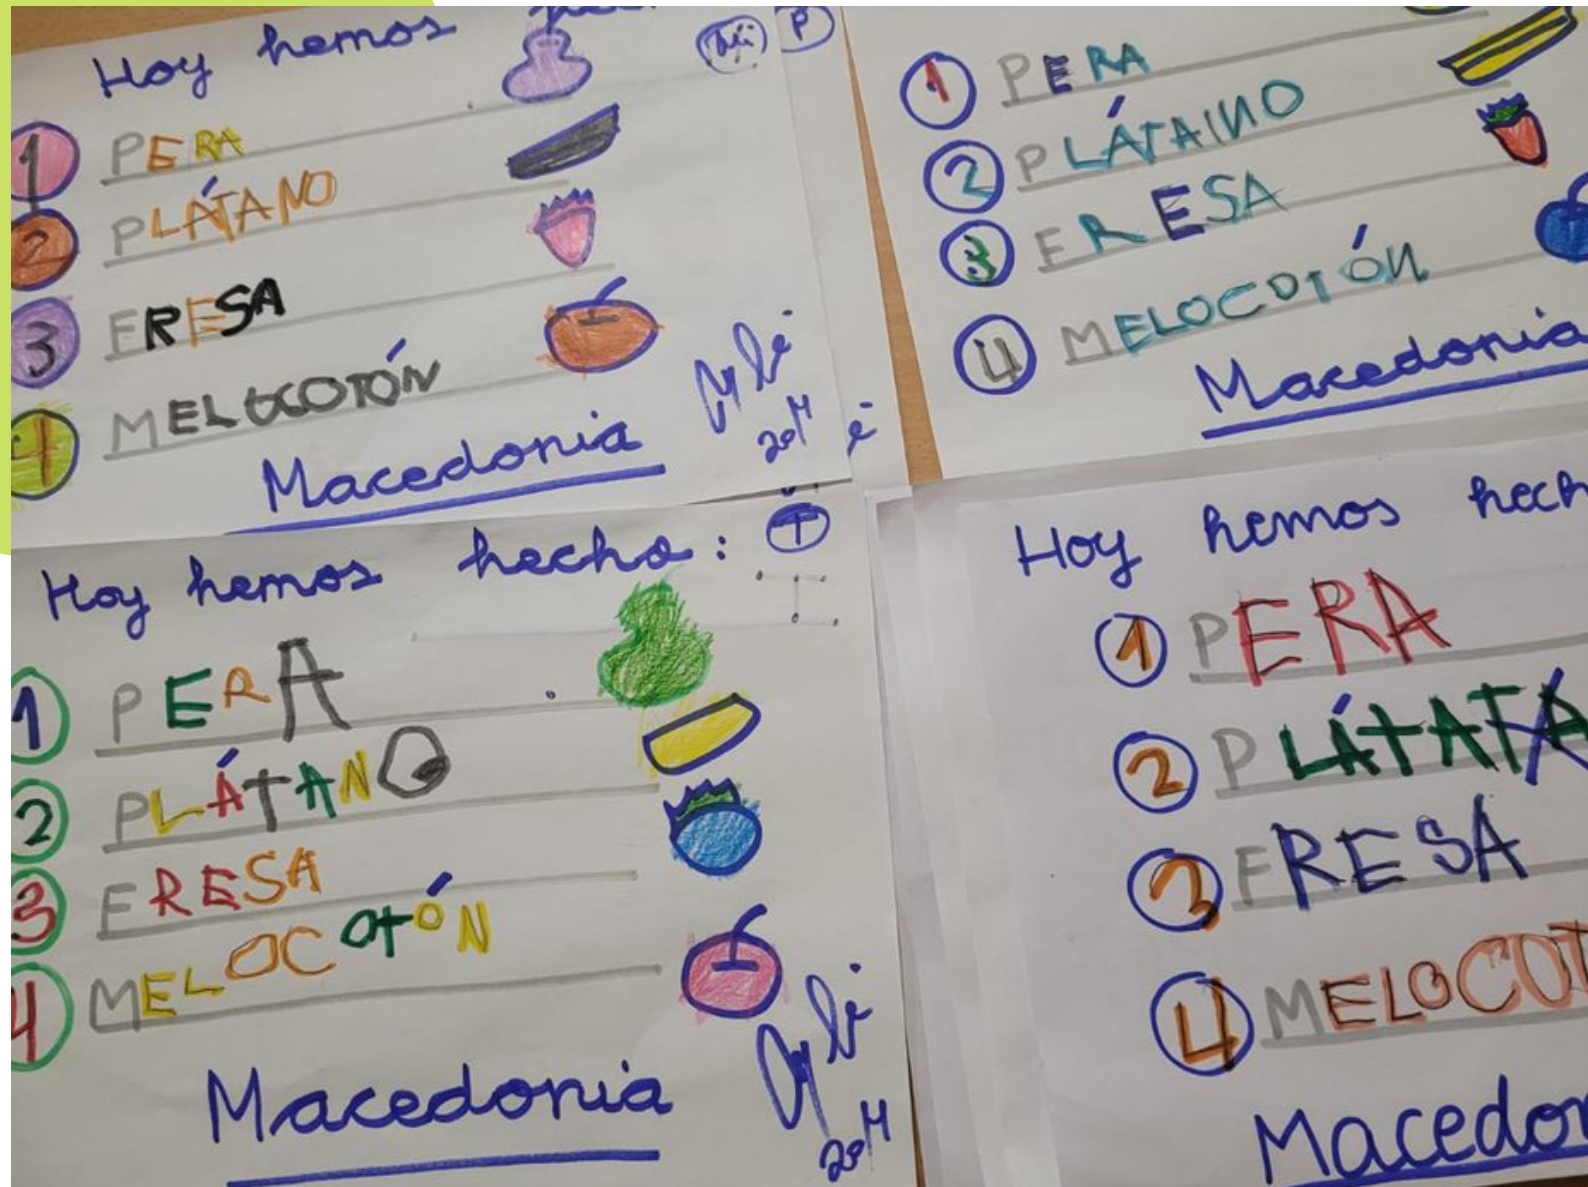 Hoy hemos
1 PERA
2 PLÁTANO
3 FRESA
4 MELOCOTÓN
Macedonia
P
1 PERA
2 PLÁTAINO
3 FRESA
4 MELOCOTÓN
Macedonia
Hoy hemos hecho:
T
1 PERA
2 PLÁTANO
3 FRESA
4 MELOCOTÓN
Macedonia
Hoy hemos hech
1 PERA
2 PLÁTATA
3 FRESA
4 MELOCOT
Macedon